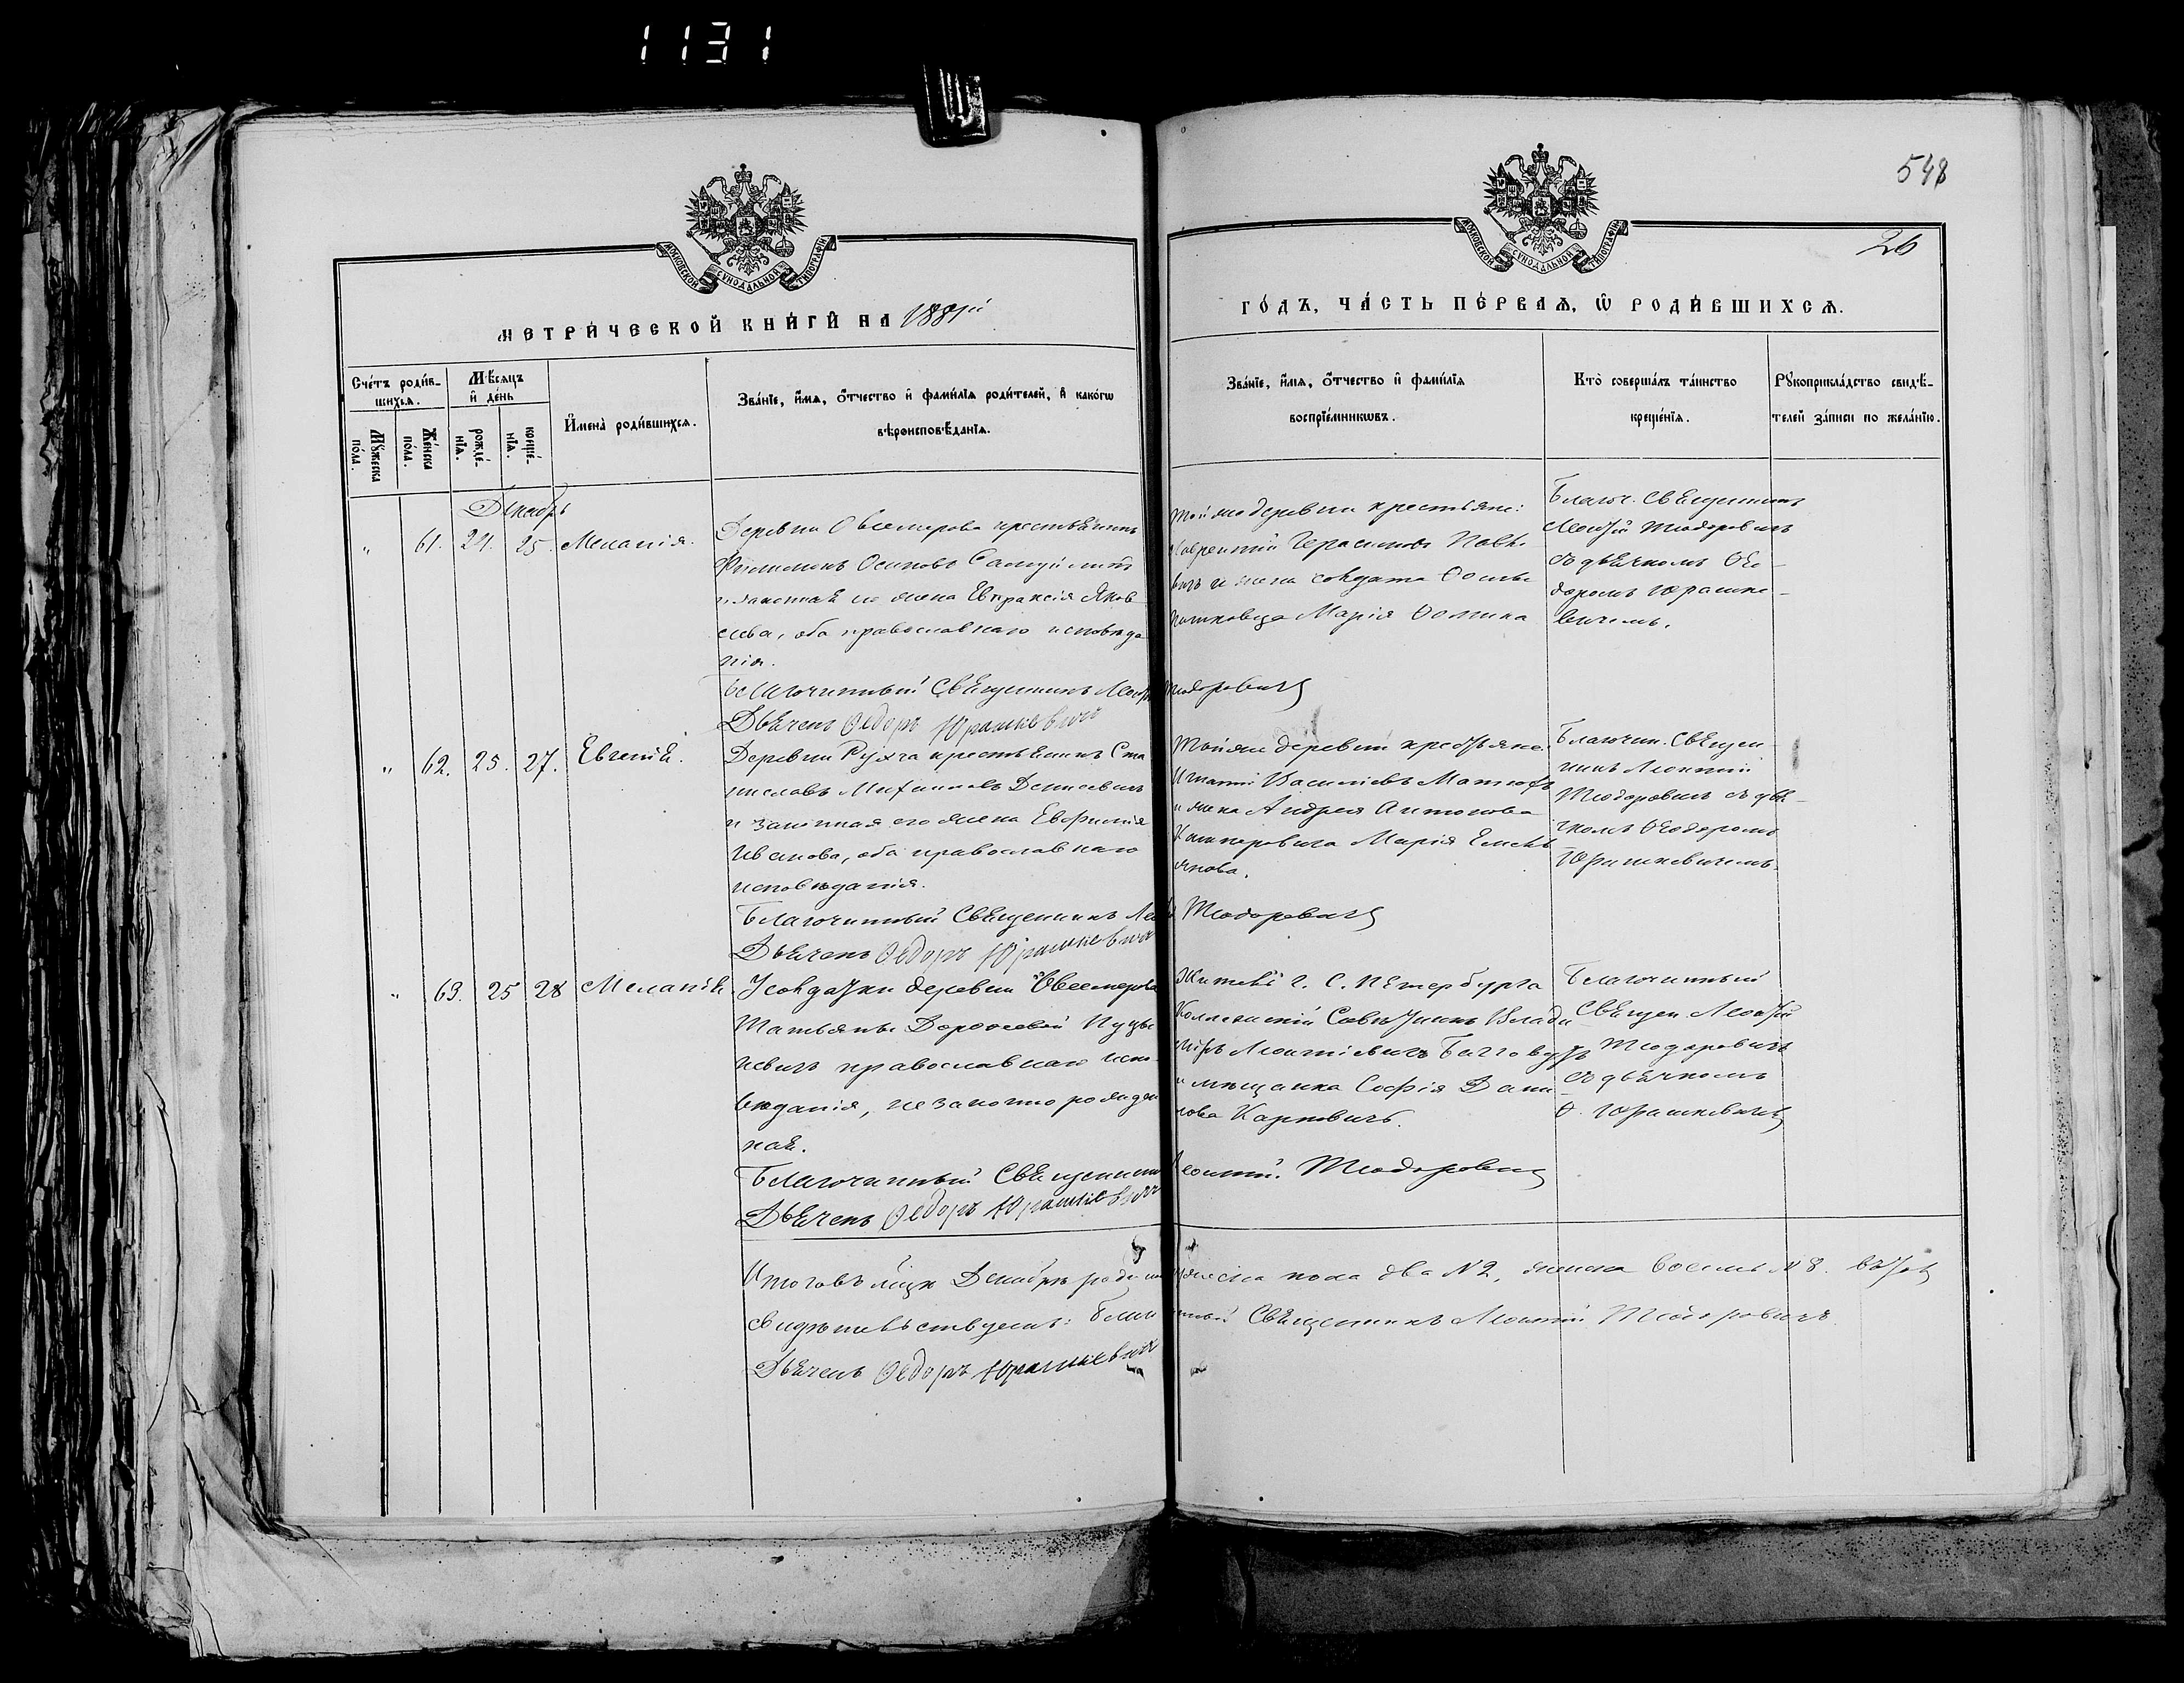 1131
548
26
МОСКОВСКОЙ СУНОДАЛЬНОЙ ТИПОГРАФІИ
МЕТРИЧЕСКОЙ КНИГИ НА 1881й
МОСКОВСКОЙ СУНОДАЛЬНОЙ ТИПОГРАФІИ
ГОДЪ, ЧАСТЬ ПЕРВАЯ, Ѿ РОДИВШИХСЯ.
Счетъ родив-
шихся.
Мужеска пола.
Женска пола.
Мѣсяцъ
и день
рожде-
нія.
креще-
нія.
Имена родившихся.
Званіе, имя, отчество и фамилія родителей, и какогѡ
вѣроисповѣданія.
Званіе, имя, отчество и фамилія
воспріемникѡвъ.
Кто совершалъ таинство
крещенія.
Рукоприкладство свидѣ-
телей записи по желанію.
Декабрь
" 61. 24. 25. Меланія.
Деревни Овсемерова крестьянинъ
Осиповъ
и законная его жена Евпраксія Яков-
лева, оба православнаго исповѣда-
нія.
Благочинный Священникъ Леонтій Теодоровичъ
Дьячекъ Ѳедоръ Юрашкевичъ
Той же деревни крестьяне:
Лаврентій Герасимовъ
и жена солдата
Марія Ѳомина
Благоч. Священникъ
Леонтій Теодоровичъ
съ дьячкомъ Ѳео-
доромъ Юрашке-
вичемъ.
" 62. 25. 27. Евгенія.
Деревни Рухча крестьянинъ Ста-
ниславъ Денисевичъ
и законная его жена Евфимія
Иванова, оба православнаго
исповѣданія.
Благочинный Священникъ Леонтій Теодоровичъ
Дьячекъ Ѳедоръ Юрашкевичъ
Той же деревни крестьяне
Игнатій Васильевъ
и жена Андрея Антонова
Марія
Благочин. Священ-
никъ Леонтій
Теодоровичъ съ дья-
чкомъ Ѳеодоромъ
Юрашкевичемъ.
" 63. 25 28 Меланія.
У солдатки деревни Овсемерова
Татьяны Дороѳеевой
православнаго испо-
вѣданія, незаконно рожден-
ная.
Благочинный Священникъ Леонтій Теодоровичъ
Дьячекъ Ѳедоръ Юрашкевичъ
Житель г. С. Петербурга
Коллежскій Совѣтникъ Влади-
міръ Леонтіевичъ
и мѣщанка Софія Дани-
лова Карповичъ.
Благочинный
Священ. Леонтій
Теодоровичъ
съ дьячкомъ
Ѳ. Юрашкевичемъ
Итого въ мцѣ Декабрѣ мужеска пола два № 2, женска восемь № 8.
свидѣтельствуемъ: Благочинный Священникъ Леонтій Теодоровичъ.
Дьячекъ Ѳедоръ Юрашкевичъ